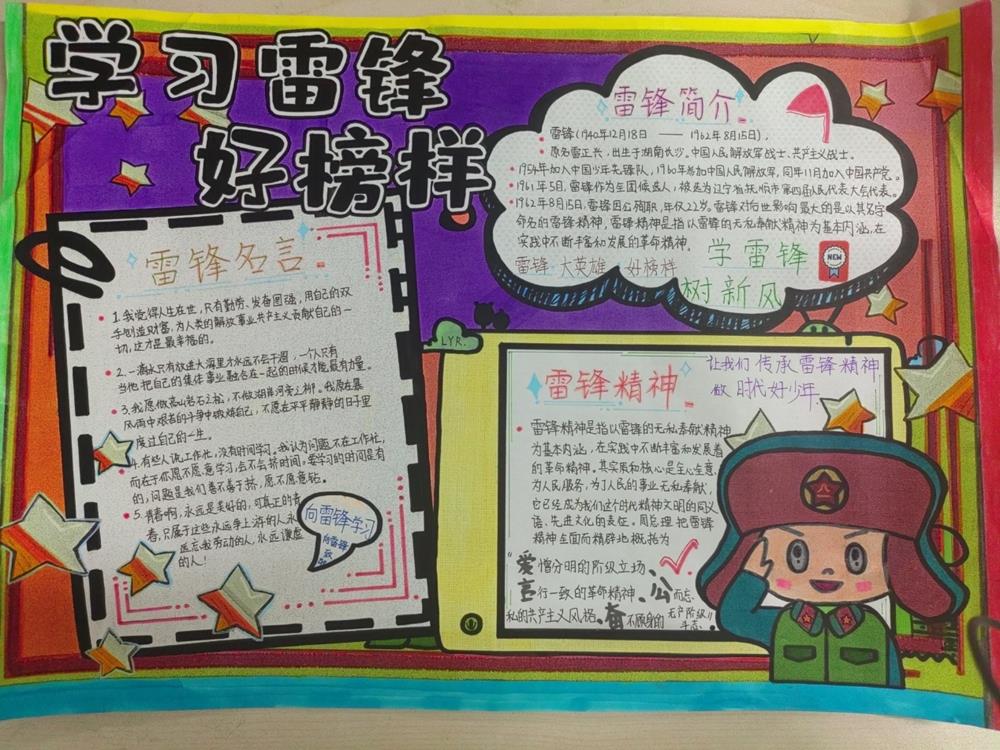 学习雷锋
好榜样
雷锋简介
雷锋(1940年12月18日 —— 1962年8月15日),
原名雷正兴,出生于湖南长沙,中国人民解放军战士、共产主义战士。
1954年加入中国少年先锋队,1960年参加中国人民解放军,同年11月加入中国共产党。
1961年5月,雷锋作为全团候选人,被选为辽宁省抚顺市第四届人民代表大会代表。
1962年8月15日,雷锋因公殉职,年仅22岁。雷锋对后世影响最大的是以其名字
命名的雷锋精神,雷锋精神是指以雷锋的无私奉献精神为基本内涵,在
实践中不断丰富和发展的革命精神。
雷锋 大英雄 好榜样
学雷锋
NEW
树新风
雷锋名言
1.我觉得人生在世,只有勤劳、发奋图强,用自己的双
手创造财富,为人类的解放事业共产主义贡献自己的一
切,这才是最幸福的。
2.一滴水只有放进大海里才永远不会干涸,一个人只有
当他把自己的集体事业融合在一起的时候才能最有力量。
3.我愿做高山岩石之松,不做湖岸河旁之柳。我愿在暴
风雨中艰苦的斗争中锻炼自己,不愿在平平静静的日子里
度过自己的一生。
4.有些人说工作忙,没有时间学习。我认为问题不在工作忙,
而在于你愿不愿意学习,会不会挤时间,要学习的时间是有
的,问题是我们善不善于挤,愿不愿意钻。
5.青春啊,永远是美好的,可真正的青
春,只属于这些永远争上游的人,永
远忘我劳动的人,永远谦虚
的人!
向雷锋学习
向雷锋
LYR.
雷锋精神
让我们传承雷锋精神
做 时代好少年
雷锋精神是指以雷锋的无私奉献精神
为基本内涵,在实践中不断丰富和发展着
的革命精神。其实质和核心是全心全意
为人民服务,为了人民的事业无私奉献,
它已经成为我们这个时代精神文明的同义
语、先进文化的表征。周总理把雷锋
精神全面而精辟地概括为
“爱憎分明的阶级立场、
言行一致的革命精神、公而忘
私的共产主义风格、奋不顾身的无产阶级
斗志”。
八一